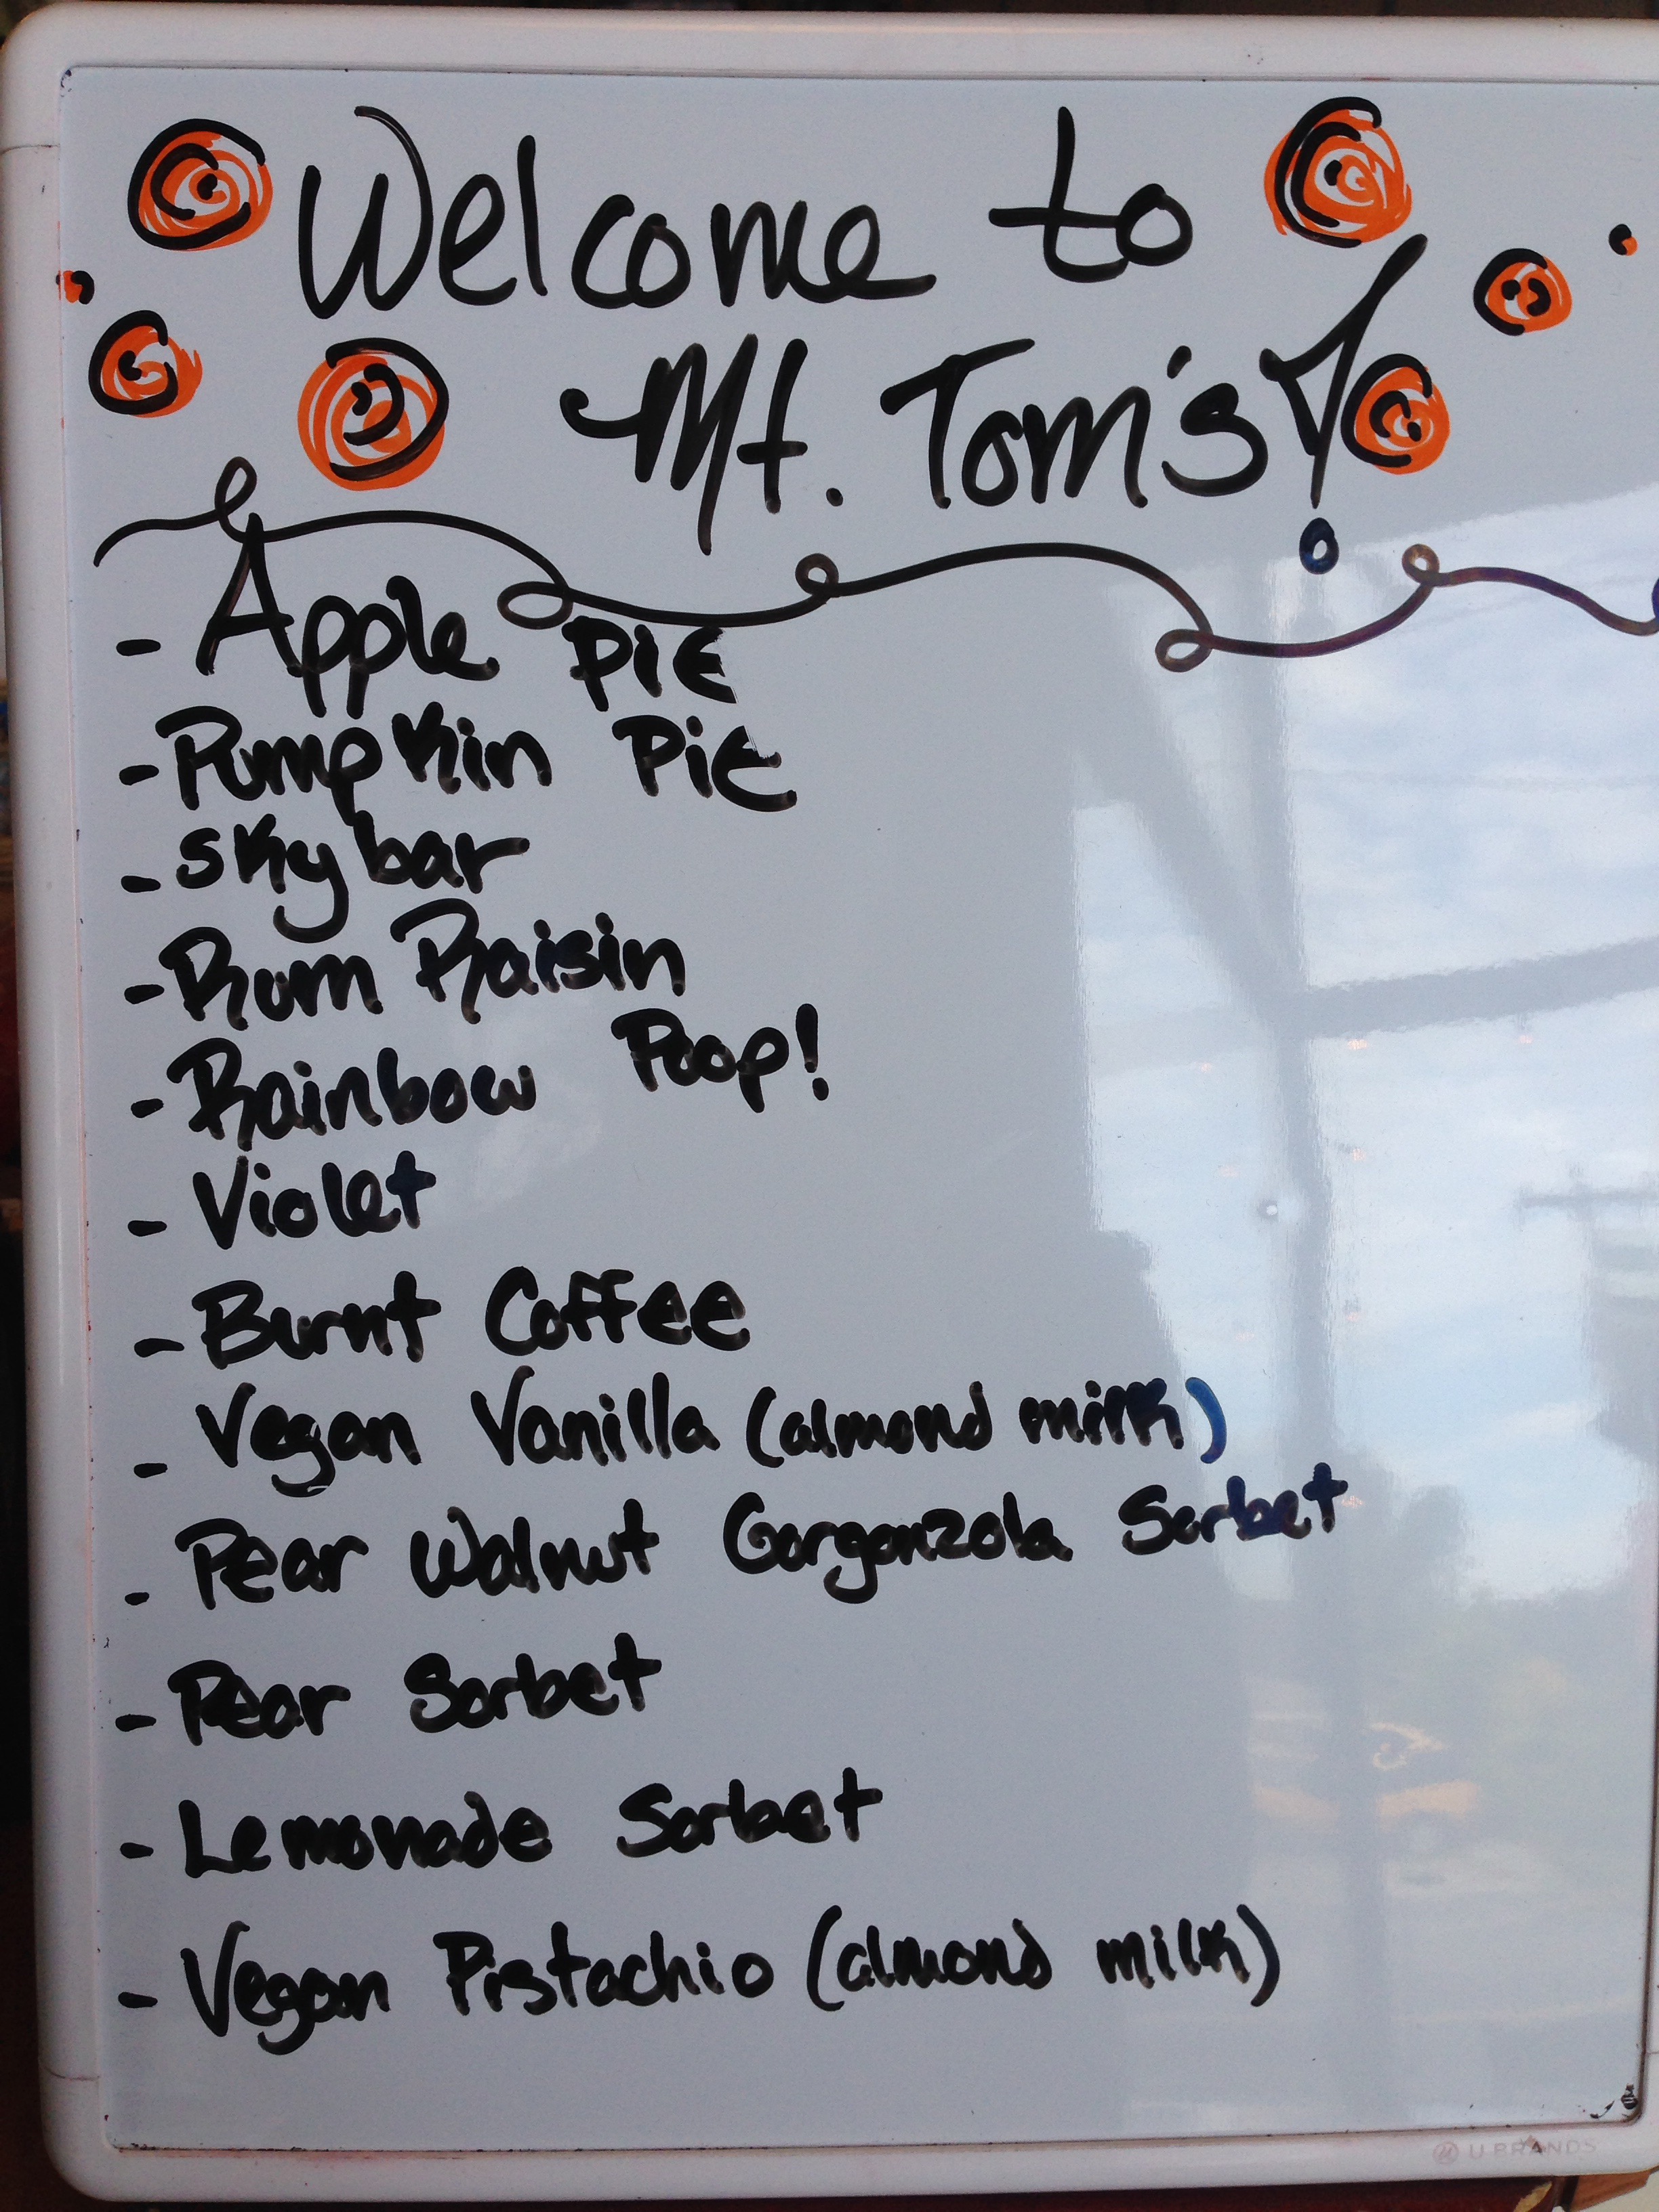 Welcome to
Mt. Tom's!
- Apple Pie
- Pumpkin Pie
- skybar
- Rum Raisin
- Rainbow Poop!
- Violet
- Burnt Coffee
- Vegan Vanilla (almond milk)
- Pear Walnut Gorgonzola Sorbet
- Pear Sorbet
- Lemonade Sorbet
- Vegan Pistachio (almond milk)
U BRANDS